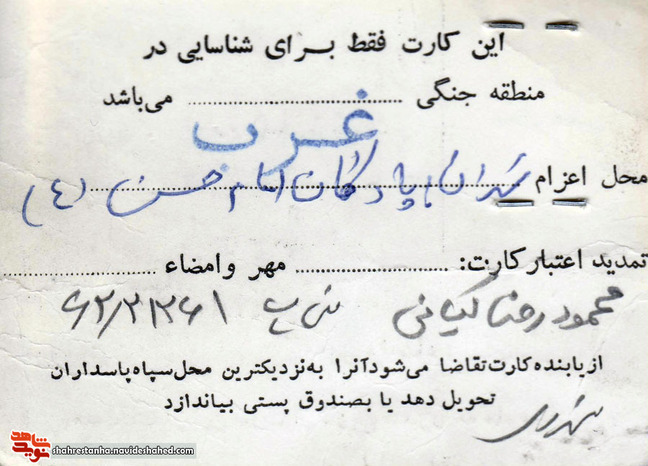 این کارت فقط برای شناسایی در
منطقه جنگی .................... می‌باشد
غرب
محل اعزام تهران، پادگان امام حسن (ع)
تمدید اعتبار کارت: .................... مهر و امضاء ....................
محمود رضا کیانی
از یابنده کارت تقاضا می‌شود آنرا به نزدیکترین محل سپاه پاسداران
تحویل دهد یا بصندوق پستی بیاندازد
شاهد
نوید
shahrestanha.navideshahed.com